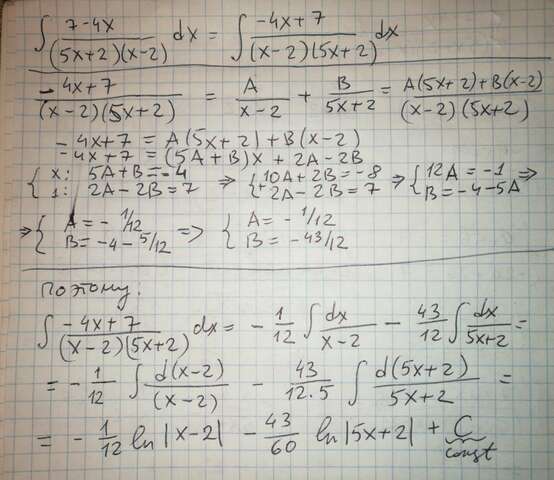 ∫ (7-4x)/((5x+2)(x-2)) dx = ∫ (-4x+7)/((x-2)(5x+2)) dx
(-4x+7)/((x-2)(5x+2)) = A/(x-2) + B/(5x+2) = (A(5x+2)+B(x-2))/((x-2)(5x+2))
-4x+7 = A(5x+2)+B(x-2)
-4x+7 = (5A+B)x + 2A-2B
{ x: 5A+B=-4 ⇒ { 10A+2B=-8 ⇒ { 12A=-1 ⇒
1: 2A-2B=7 + 2A-2B=7 B=-4-5A
⇒ { A=-1/12 ⇒ { A=-1/12
B=-4-5/12 B=-43/12
Поэтому:
∫ (-4x+7)/((x-2)(5x+2)) dx = -1/12 ∫ dx/(x-2) - 43/12 ∫ dx/(5x+2) =
= -1/12 ∫ d(x-2)/(x-2) - 43/(12·5) ∫ d(5x+2)/(5x+2) =
= -1/12 ln|x-2| - 43/60 ln|5x+2| + C
const